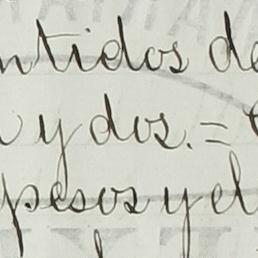 ntidos de
y dos. =
pesos y el